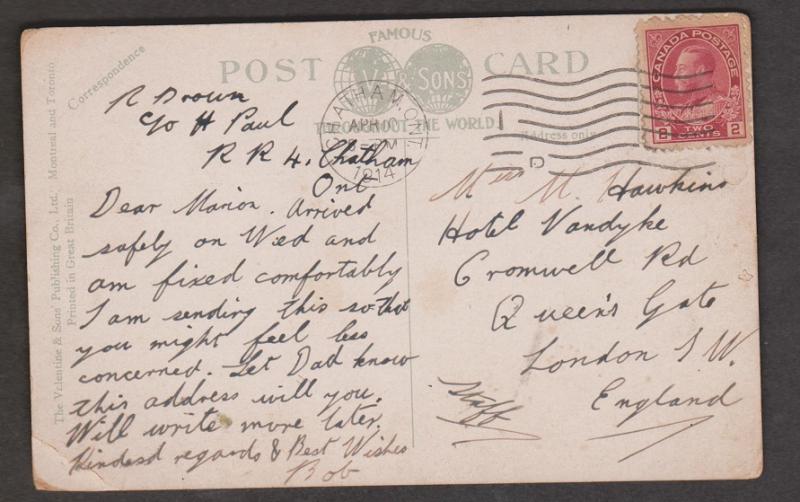 FAMOUS
POST CARD
V. & SONS
THROUGHOUT THE WORLD
Address only
Correspondence
The Valentine & Sons' Publishing Co., Ltd. Montreal and Toronto
Printed in Great Britain
CHATHAM, ONT.
APR
PM
1914
CANADA POSTAGE
2 TWO CENTS 2
R Brown
c/o H Paul
R R 4. Chatham
Ont
Dear Marion. Arrived
safely on Wed and
am fixed comfortably
I am sending this so that
you might feel less
concerned. Let Dad know
this address will you.
Will write more later.
Kindest regards & Best Wishes
Bob
Miss M. Hawkins
Hotel Vandyke
Cromwell Rd
Queen's Gate
London S.W.
England
Staff